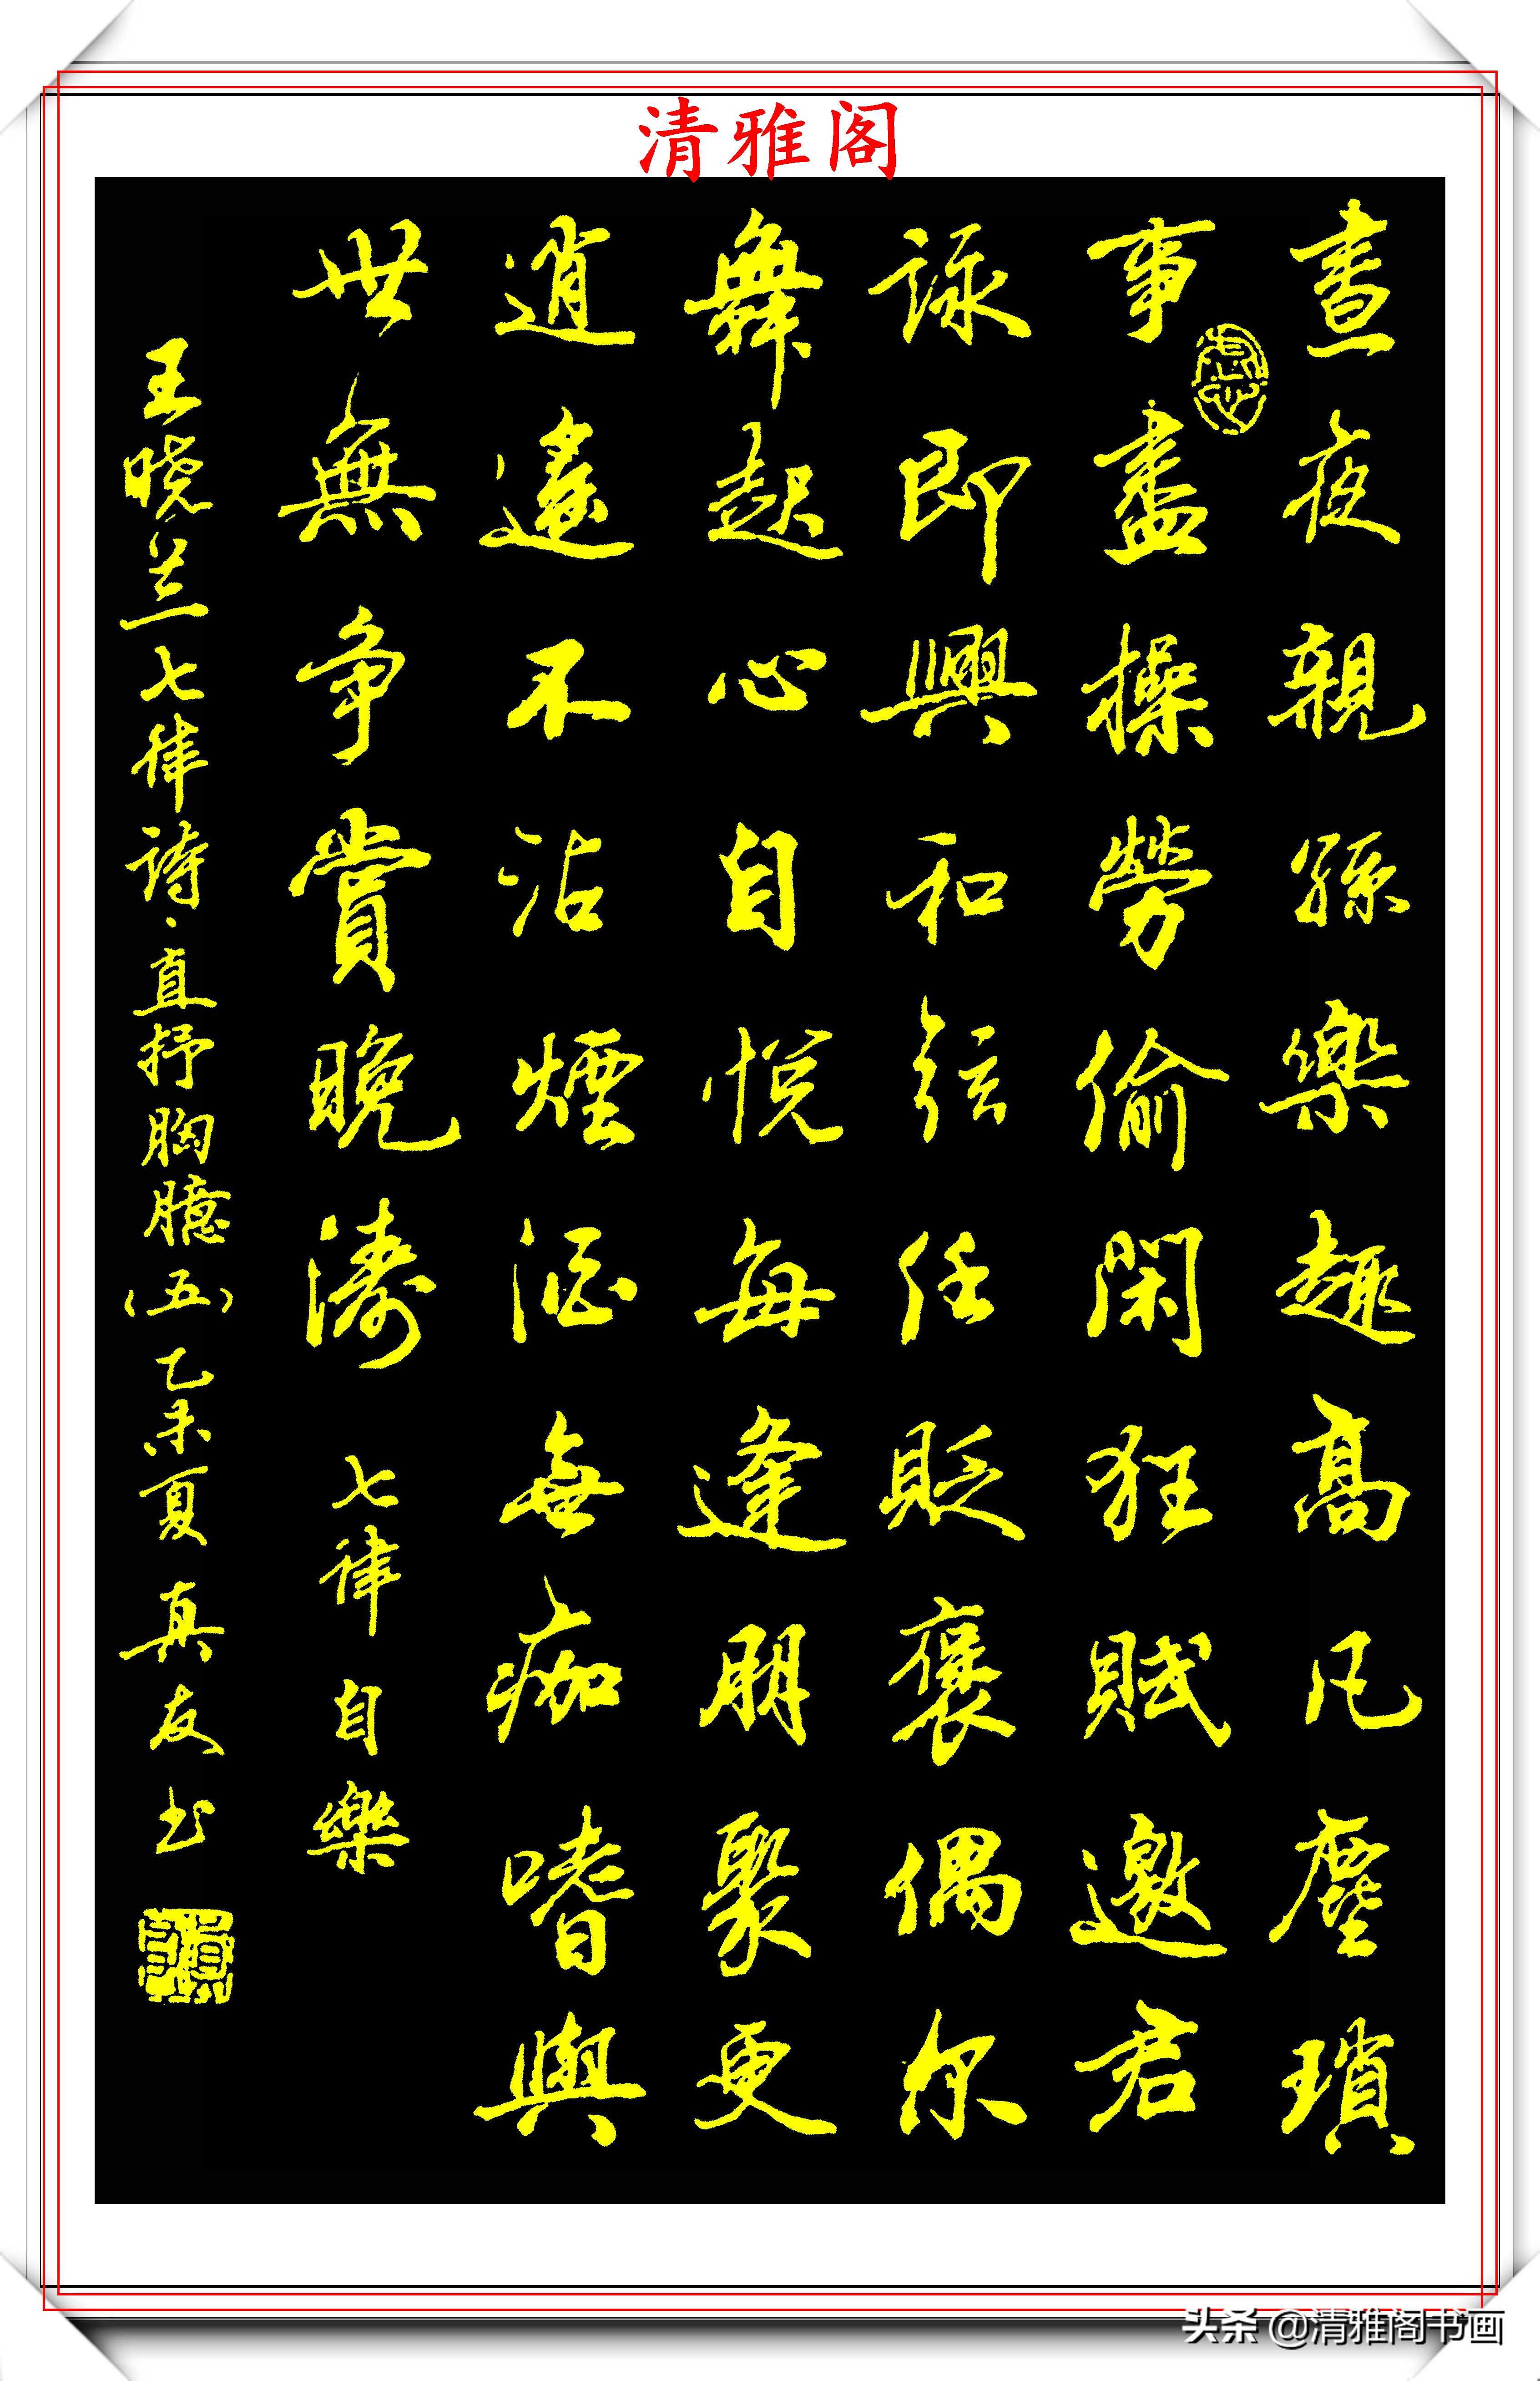 清雅阁
晝夜親孫樂趣高凡塵瑣
事盡操勞偷閑狂賦邀君
詠即興和弦任貶褒偶尔
舞起心自悅每逢朋聚更
逍遥不沾煙酒無痂嗜與
世無争賞晚濤 七律 自樂
王晓兰七律詩、直抒胸臆(五)乙未夏 真友书
头条 @清雅阁书画